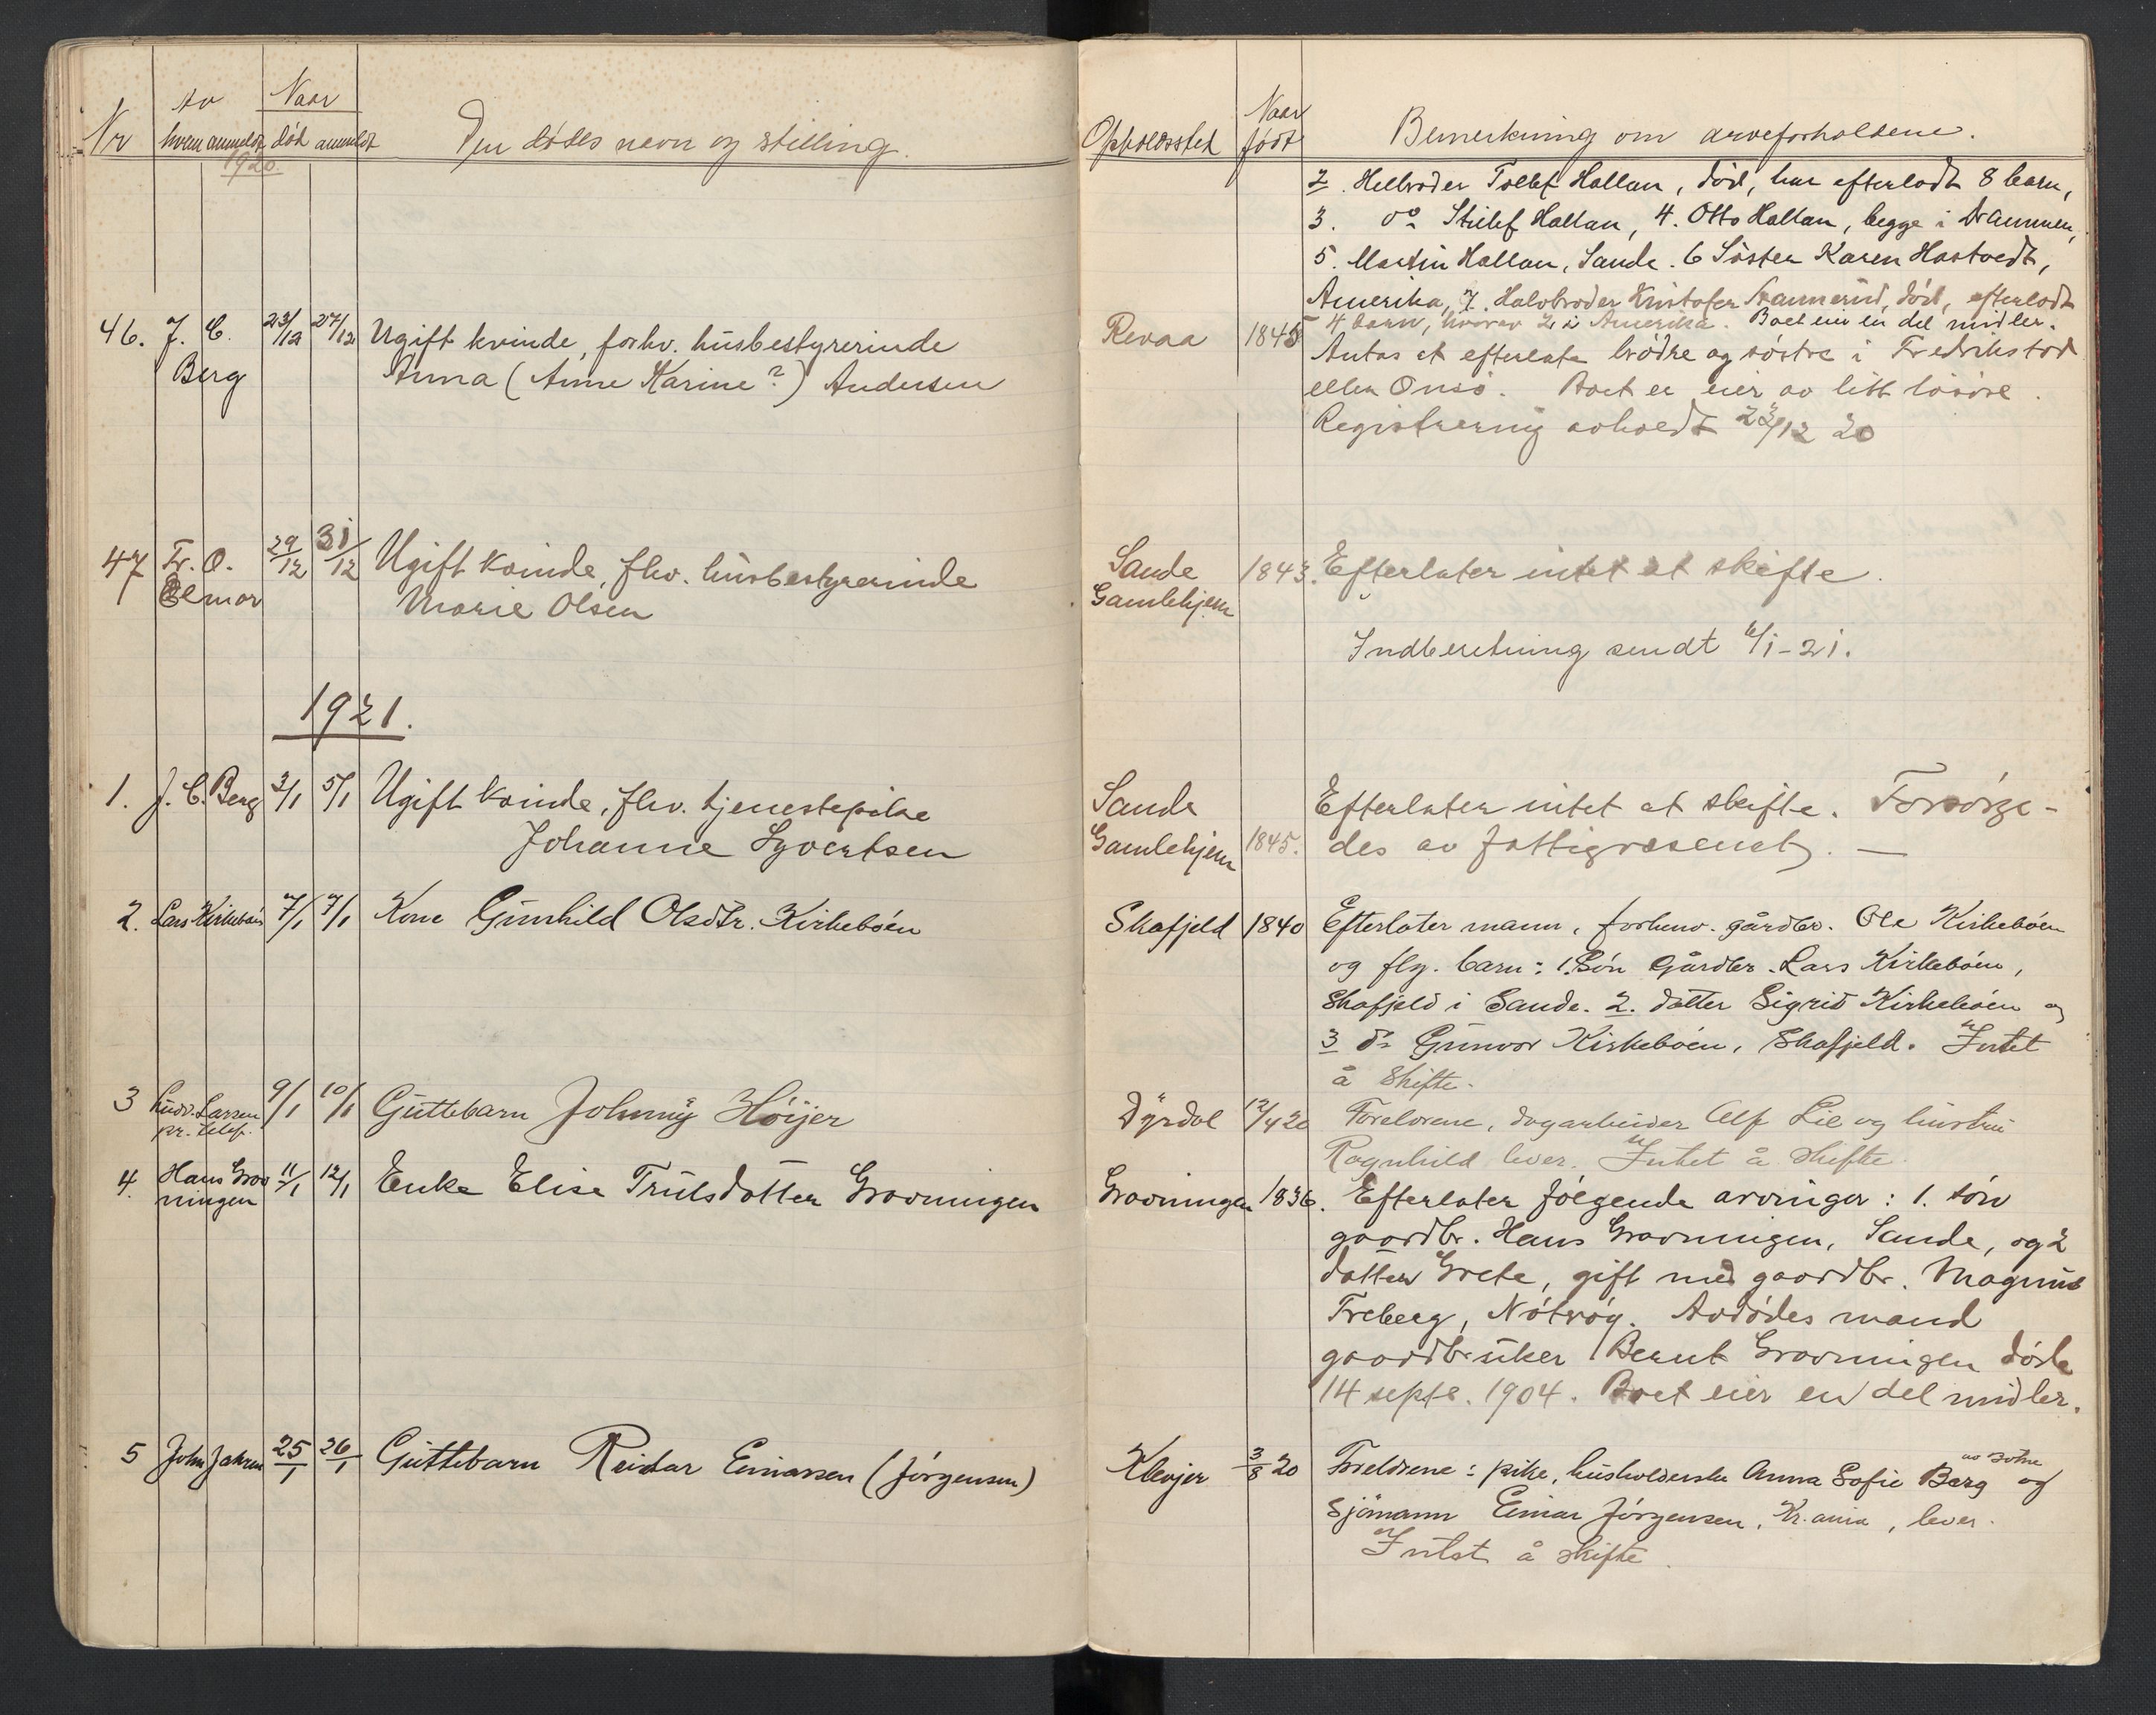 Nr
Av hvem anmeldt
Naar
død anmeldt
Den dødes navn og stilling.
1920.
46. J. C. Berg 23/12 27/12 Ugift kvinde, forhv. husbestyrerinde
Anna (Anne Karine?) Andersen
47 Fr. O. Elmar 29/12 31/12 Ugift kvinde, fhv. husbestyrerinde
Marie Olsen
1921.
1. J. C. Berg 3/1 5/1 Ugift kvinde, fhv. tjenestepike
Johanne Syvertsen
2. Lars Kirkebøen 7/1 7/1 Kone Gunhild Olsdtr. Kirkebøen
3 Ludv. Larsen pr. telef. 9/1 10/1 Guttebarn Johnny Höijer
4. Hans Gravningen 11/1 12/1 Enke Elise Trulsdatter Gravningen
5 John Jahren 25/1 26/1 Guttebarn Reidar Einarsen (Jørgensen)
Opholdssted
Naar født
Bemerkning om arveforholdene.
2. Helbroder Tollef Hallan, død, har efterladt 8 barn,
3. do Hallan, 4. Otto Hallan, begge i Drammen,
5. Martin Hallan, Sande. 6 Søster Karen Hastvedt,
Amerika, 7. Halvbroder Kristofer død, efterladt
4 barn, hvorav 2 i Amerika. Boet eier en del midler.
Revaa 1845 Antas at efterlate brødre og søstre i Fredrikstad
eller Onsø. Boet er eier av litt løsøre.
Registrering avholdt 23/12 20
Sande Gamlehjem 1843. Efterlater intet at skifte.
Indberetning sendt 6/1-21.
Sande Gamlehjem 1845. Efterlater intet at skifte. Forsørge-
des av fattigvæsenet. —
Skafjeld 1840 Efterlater mann, forhenv. gårdbr. Ole Kirkebøen
og flg. barn: 1. Søn Gårdbr. Lars Kirkebøen,
Skafjeld i Sande. 2. datter Sigrid Kirkebøen og
3 do Gunvor Kirkebøen, Skafjeld. Intet
å skifte.
Dyrdal 12/4 20 Forelrene, dagarbeider Alf Lie og hustru
Ragnhild lever. Intet å skifte.
Gravningen 1836. Efterlater følgende arvinger: 1. søn
gaardbr. Hans Gravningen, Sande, og 2
datter Grete, gift med gaardbr. Magnus
Freberg, Nøtrøy. Avdødes mand
gaardbruker Bernt Gravningen døde
14 septe. 1904. Boet eier en del midler.
Klevjer 3/8 20 Foreldrene: pike, husholderske Anna Sofie Berg av Botne og
Sjömann Einar Jørgensen, Kr.ania, lever.
Intet å skifte.